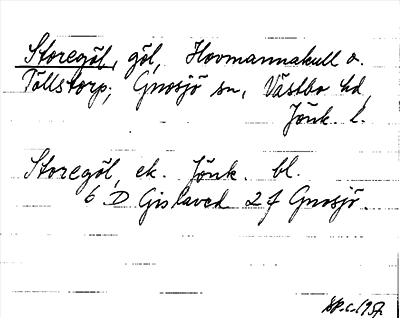 Storegöl, göl, Hovmannakull o.
Töllstorp, Gnosjö sn, Västbo hd,
Jönk. l.
Storegöl, ek. Jönk. bl.
6 D Gislaved 2 f Gnosjö.